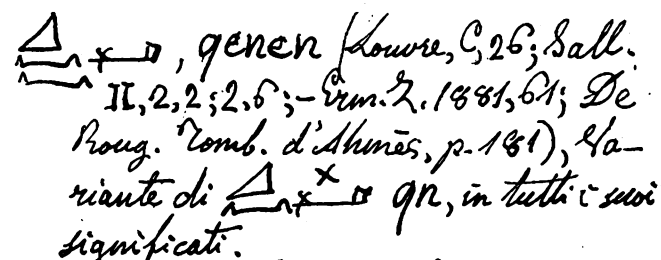 , qenen (Louvre, C, 26; Sall.
II, 2, 2; 2, 6; – Erm. Z. 1881, 61; De
Roug. Tomb. d'Ahmès, p. 181), Va-
riante di qn, in tutti i suoi
significati.